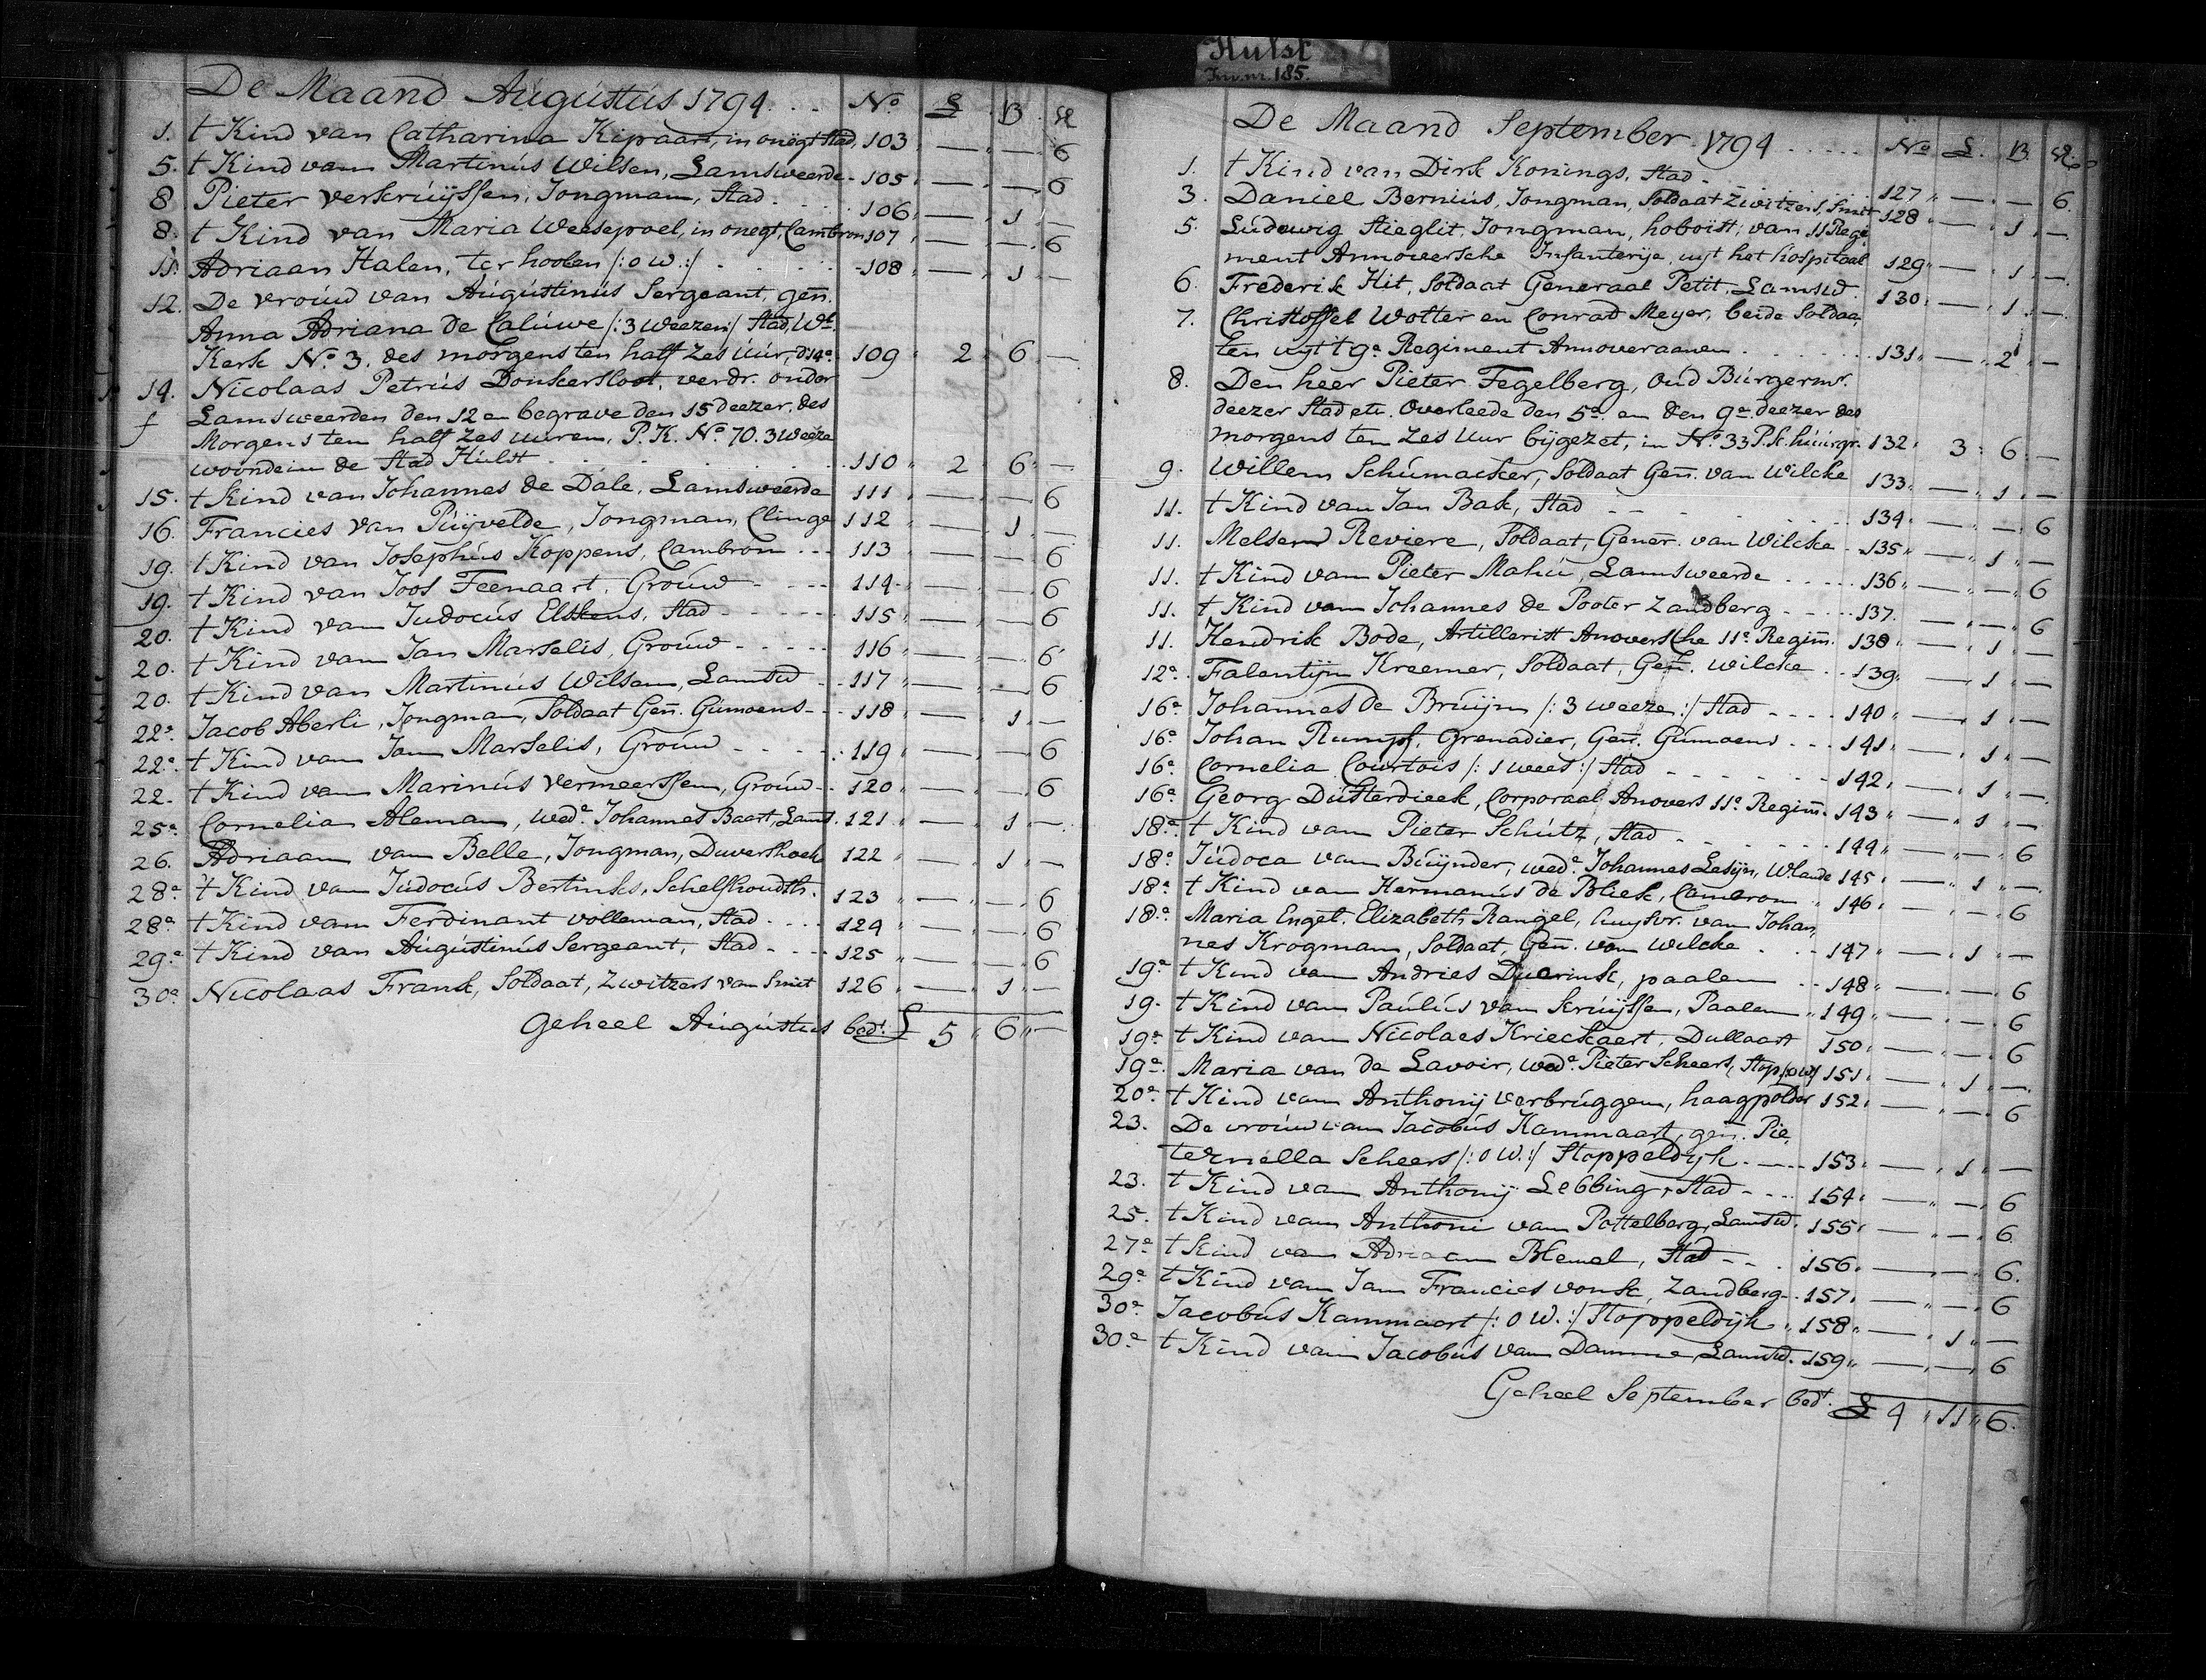 Hulst
Inv. nr. 185.
De Maand Augustus 1794. . . No. £ B gr
1. t Kind van Catharina Kipaart, in onegt Stad, 103 — — 6
5. t Kind van Martinus Wilsen, Lamsweerde - 105 — — 6
8 Pieter verkruijssen, Jongman, Stad . . . 106 — 1 —
8. t Kind van Maria Weesepoel, in onegt, Cambron 107 — — 6
11. Adriaan Halen, ter hoolen /: 0 W :/ . . . . 108 — 1 —
12. De vrouw van Augustinus Sergeant, gen.
Anna Adriana de Caluwe /: 3 Weezen :/ Stad, Wt.
Kerk No. 3. des morgens ten half zes uur, d'14e. 109 2 6 —
14. Nicolaas Petrus Donkersloot, verdr. onder
f Lamsweerden den 12 en begrave den 15 deezer, des
Morgens ten half zes uuren, P. K. No. 70. 3 Weeze
woonde in de Stad Hulst . . . . . 110 2 6 —
15. t Kind van Johannes de Dale, Lamsweerde 111 — — 6
16. Francies van Puijvelde, Jongman, Clinge 112 — 1 —
19. t Kind van Josephus Koppens, Cambron . . . 113 — — 6
19. t Kind van Joos Feenaart, Grouw - - - - 114 — — 6
20. t Kind van Judocus Elstens, Stad - - - - - 115 — — 6
20. t Kind van Jan Marselis, Grouw - - - - - 116 — — 6
20. t Kind van Martinus Wilsen, Lamsw - - 117 — — 6
22e. Jacob Aberli, Jongman, Soldaat Gen. Gumoens - - 118 — 1 —
22e. t Kind van Jan Marselis, Grouw - - - - 119 — — 6
22. t Kind van Marinus Vermeerssen, Grouw - - 120 — — 6
25e. Cornelia Aleman, wede. Johannes Baart, Lams. 121 — 1 —
26. Adriaan van Belle, Jongman, Duvershoek 122 — 1 —
28e. t Kind van Judocus Bertinks, Schelfhoudth. 123 — — 6
28e. t Kind van Ferdinant Volleman, Stad . . . 124 — — 6
29e. t Kind van Augustinus Sergeant, Stad - - - 125 — — 6
30e. Nicolaas Frank, Soldaat, Zwitzers van Smit 126 — 1 —
Geheel Augustus bedt. £ 5 " 6 " —
De Maand September 1794 . . . . . No. £. B. gr.
1. t Kind van Dirk Konings, Stad . . . 127 — — 6.
3. Daniel Bernius, Jongman, Soldaat Zwitzers, Smit 128 — 1 —
5. Ludewig Stieglit, Jongman, hoboist, van 11 Regi
ment Annoversche Infanterije, uyt het hospitaal 129 — 1 —
6. Frederik Hit, Soldaat Generaal Petit, Lamsw. 130 — 1 —
7. Christoffel Wolter en Conrad Meyer, beide Soldaa,
ten uyt t 9e. Regiment Annoveraanen . . . . 131 — 2 —
8. Den heer Pieter Fegelberg, Oud Burgermr.
deezer Stad etc. Overleede den 5e. en den 9e. deezer des
morgens ten zes uur bijgezet, in No. 33 P. K. huurgr. 132 3 6 —
9. Willem Schumacker, Soldaat Gen. van Wilcke 133 — 1 —
11. t Kind van Jan Bak, Stad . . . . . 134 — — 6
11. Melsend Reviere, Soldaat, Gener. van Wilcke - 135 — 1 —
11. t Kind van Pieter Mahu, Lamsweerde . . . . 136 — — 6
11. t Kind van Johannes de Pooter Zandberg - - - 137. — — 6
11. Hendrik Bode, Artillerist Anoversche 11e. Regim. 138 — 1 —
12e. Falentijn Kreemer, Soldaat, Gen. Wilcke . . 139 — 1 —
16e. Johannes de Bruijn /: 3 weeze :/ Stad - - - - 140 — 1 —
16e. Johan Rumpf, Grenadier, Gen. Gumoens . . . 141 — 1 —
16e. Cornelia Courtois /: 1 wees :/ Stad - - - - - 142 — 1 —
16e. Georg Dusterdieck, Corporaal Anovers 11e. Regim. 143 — 1 —
18e. t Kind van Pieter Schutz, Stad - - - - - 144 — — 6
18e. Judoca van Buijnder, wede. Johannes Lesijn, Wlande 145 — 1 —
18e. t Kind van Hermanus de Bliek, Cambron 146 — — 6
18e. Maria Engel. Elizabeth Rangel, huysvr. van Johan,
nes Krogman, Soldaat, Gen. van Wilcke . . . 147 — 1 —
19e. t Kind van Andries Duerink, paalen . . 148 — — 6
19. t Kind van Paulus van Kruijssen, Paalen 149 — — 6
19e. t Kind van Nicolaes Krieckaert, Dullaart 150 — — 6
19e. Maria van de Lavoir, wede. Pieter Scheers, Stop /: 0 W :/ 151 — 1 —
20e. t Kind van Anthonij Verbruggen, haagpolder 152 — — 6
23. De vrouw van Jacobus Kammaart, gen. Pie,
ternella Scheers /: 0 W. :/ Stoppeldijk . . . 153 — 1 —
23. t Kind van Anthonij Lebbing, Stad - - - 154 — — 6
25. t Kind van Anthoni van Pottelberg, Lamsw. 155 — — 6
27e. t Kind van Adriaan Blemel, Stad - - . 156 — — 6.
29e. t Kind van Jan Francies Vonk, Zandberg - . 157 — — 6
30e. Jacobus Kammaart /: 0 W. :/ Stoppeldijk 158 — 1 —
30e. t Kind van Jacobus van Damme, Lamsw. 159 — — 6
Geheel September bedt. £ 4 " 11 " 6.